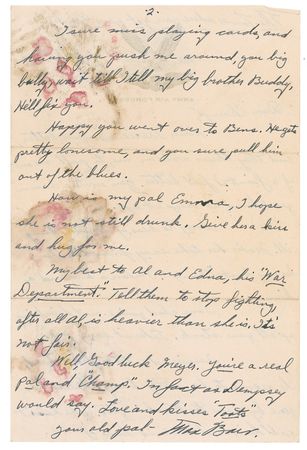 2.
I sure miss playing cards, and
having you push me around, you big
bully, wait till I tell my big brother Buddy,
He'll fix you.
Happy you went over to Bens. He gets
pretty lonesome, and you sure pull him
out of the blues.
How is my pal Emma, I hope
she is not still drunk. Give her a kiss
and hug for me.
My best to Al and Edna, his "War
Department." Tell them to stop fighting,
after all Al, is heavier than she is. It's
not fair.
Well, Good luck Meyer. You're a real
pal and "Champ". In fact as Dempsey
would say. Love and kisses "Toots"
your old pal - Max Baer.